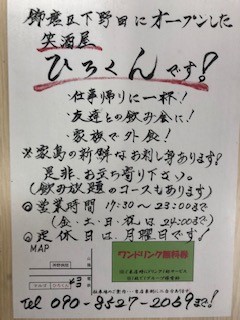 飾磨区下野田にオープンした
笑酒屋
ひろくんです!
・仕事帰りに一杯!
・友達との飲み会に!
・家族で外食!
※家島の新鮮なお刺し身あります?
是非、お立ち寄り下さい。
(飲み放題のコースもあります)
◎営業時間 17:30〜23:00まで
(金・土・日・祝は24:00まで)
◎定休日は月曜日です!
MAP
ワンドリンク無料券
tel 090-8527-2069まで!